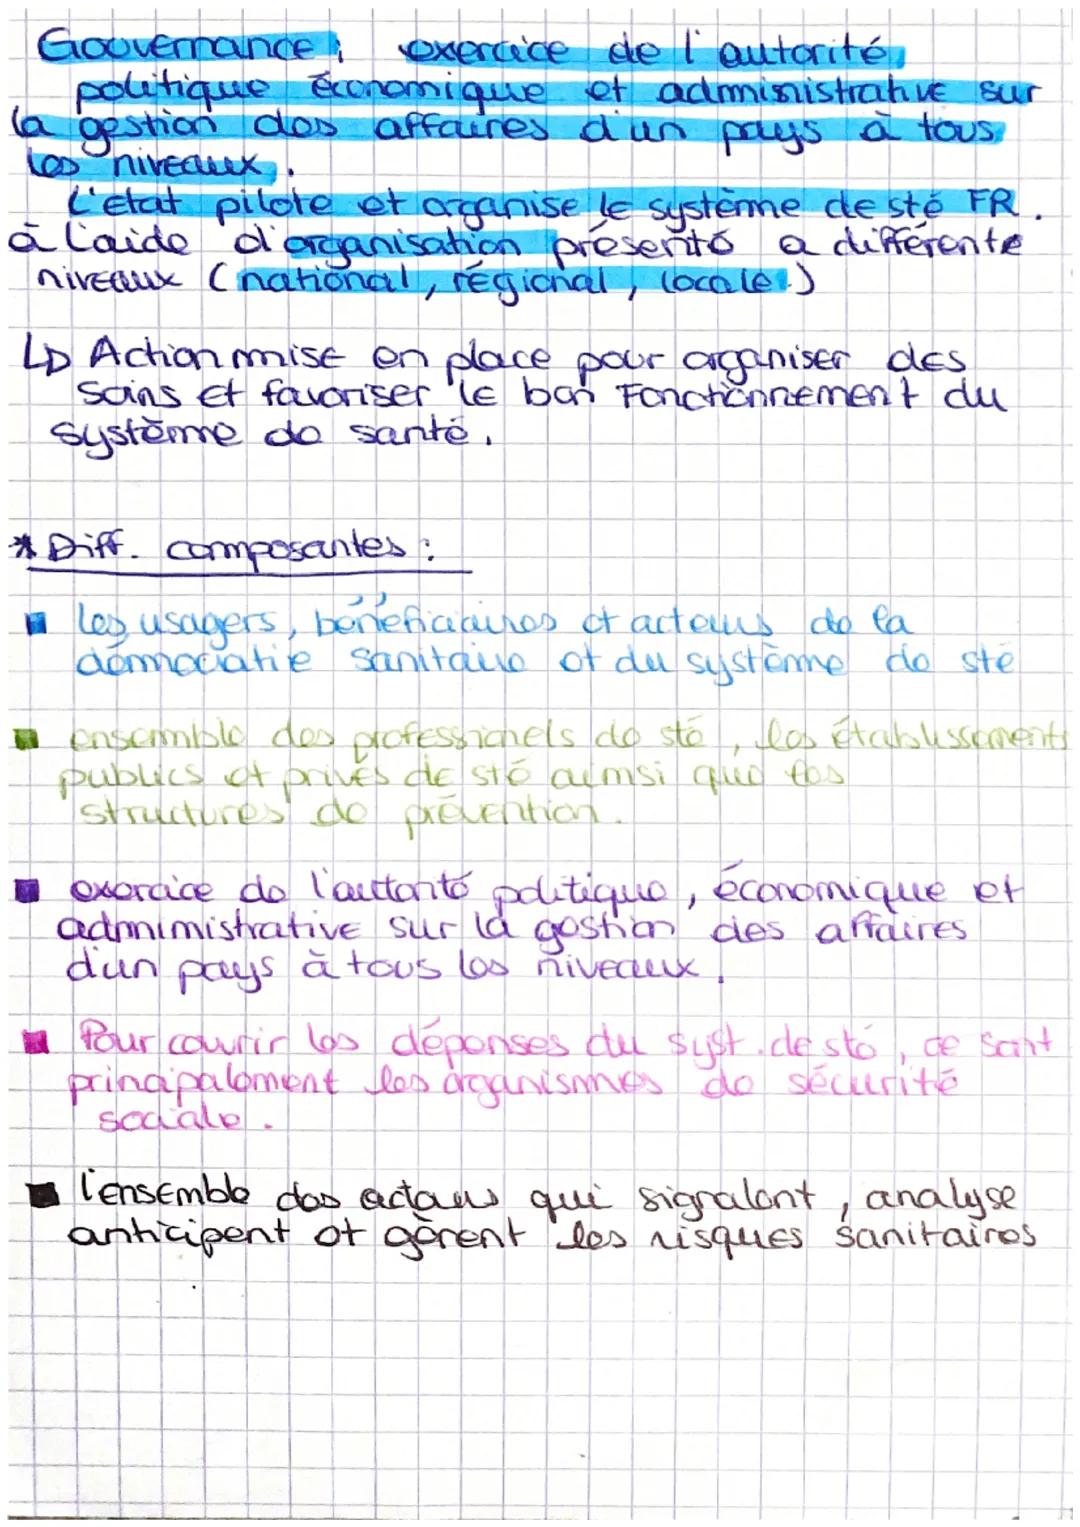 Gouvernance : exercice de l'autorité,
politique économique et administrative sur
la gestion des affaires d'un pays à tous
les niveaux.
L'état pilote et organise le système de sté FR.
à l'aide d'organisation présenté a différente
niveaux (national, régional, locale.)
↳ Action mise en place pour organiser des
soins et favoriser le bon Fonctionnement du
système de santé.
* Diff. composantes :
▪ les usagers, bénéficiaires et acteurs de la
démocratie sanitaire et du système de sté
▪ ensemble des professionels de sté, les établissements
publics et privés de sté aimsi que les
structures de prévention.
▪ exercice de l'autorité politique, économique et
admimistrative sur la gestion des affaires
d'un pays à tous les niveaux.
▪ Pour couvrir les dépenses du syst. de sté, ce sont
principalement les organismes de sécurité
sociale.
▪ l'ensemble des acteurs qui signalent, analyse
anticipent et gèrent les risques sanitaires